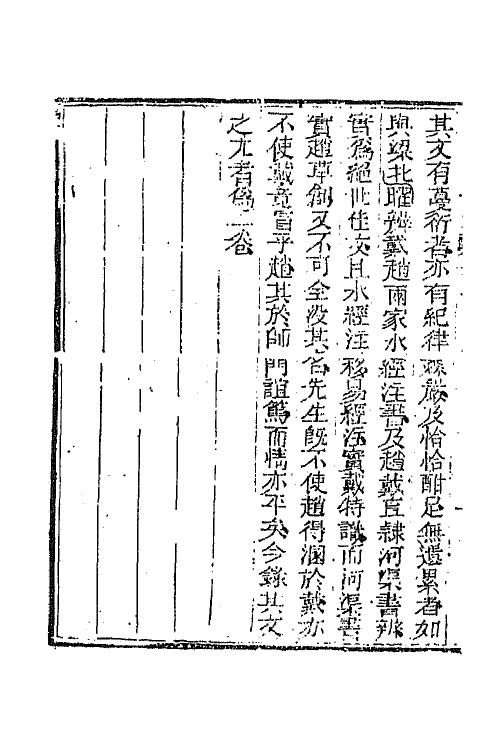 其文有蔓衍者亦有紀律森嚴及恰恰酣足無遺累者如
與梁北曜辨戴趙兩家水經注書及趙戴直隸河渠書辨
皆為絕世佳文且水經注移易經注實戴特識而河渠書
實趙草創又不可全沒其名先生既不使趙得溷於戴亦
不使戴竟冒乎趙其於師門誼篤而情亦平矣今錄其文
之尤者為二卷